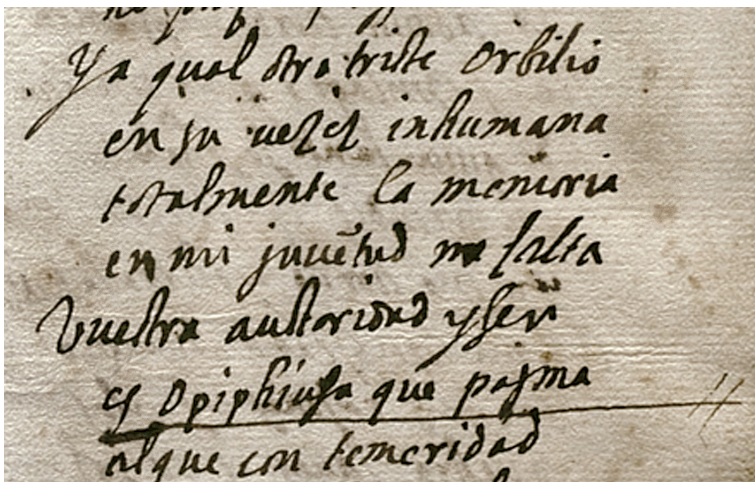 Ya qual otro triste Orbilio
en su uegez inhumana
totalmente la memoria
en mi juuētud me falta
Vuestra autoridad y ser
es Opiphiusa que pasma
al que con temeridad